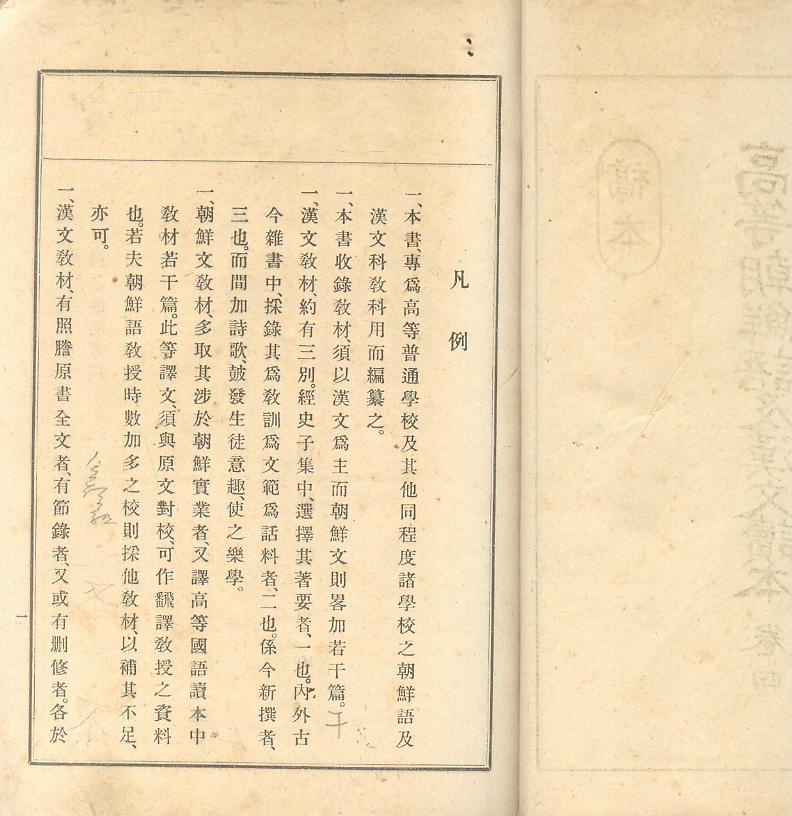 凡例
一、本書、專爲高等普通學校及其他同程度諸學校之朝鮮語及
漢文科敎科用而編纂之。
一、本書收錄敎材、須以漢文爲主而朝鮮文則畧加若干篇。
一、漢文敎材、約有三別。經史子集中、選擇其著要者、一也。內外古
今雜書中、採錄其爲敎訓爲文範爲話料者、二也。係今新撰者、
三也。而間加詩歌、皷發生徒意趣、使之樂學。
一、朝鮮文敎材、多取其涉於朝鮮實業者、又譯高等國語讀本中
敎材若干篇。此等譯文、須與原文對校、可作飜譯敎授之資料
也。若夫朝鮮語敎授時數加多之校則採他敎材、以補其不足、
亦可。
一、漢文敎材、有照謄原書全文者、有節錄者、又或有刪修者。各於
一